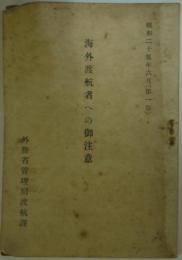 昭和二十五年六月(第一版)
海外渡航者への御注意
外務省管理局渡航課